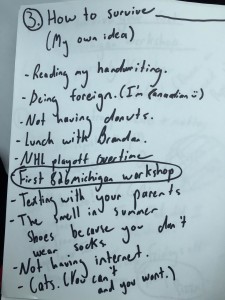 3. How to survive
(My own idea)
- Reading my handwriting.
- Being foreign. (I'm Canadian :))
- Not having donuts.
- Lunch with Brandan.
- NHL playoff overtime
First B2Bmichigan workshop
- Texting with your parents
- The smell in summer
shoes because you don't
wear socks.
- Not having internet.
- Cats. (You can't
and you won't.)